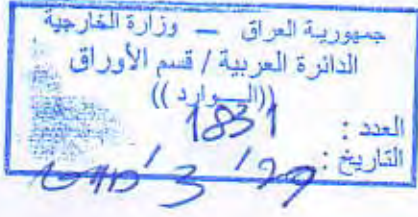 جمهورية العراق — وزارة الخارجية
الدائرة العربية / قسم الأوراق
((الـــوارد))
العدد : 1831
التاريخ : 29 / 3 /